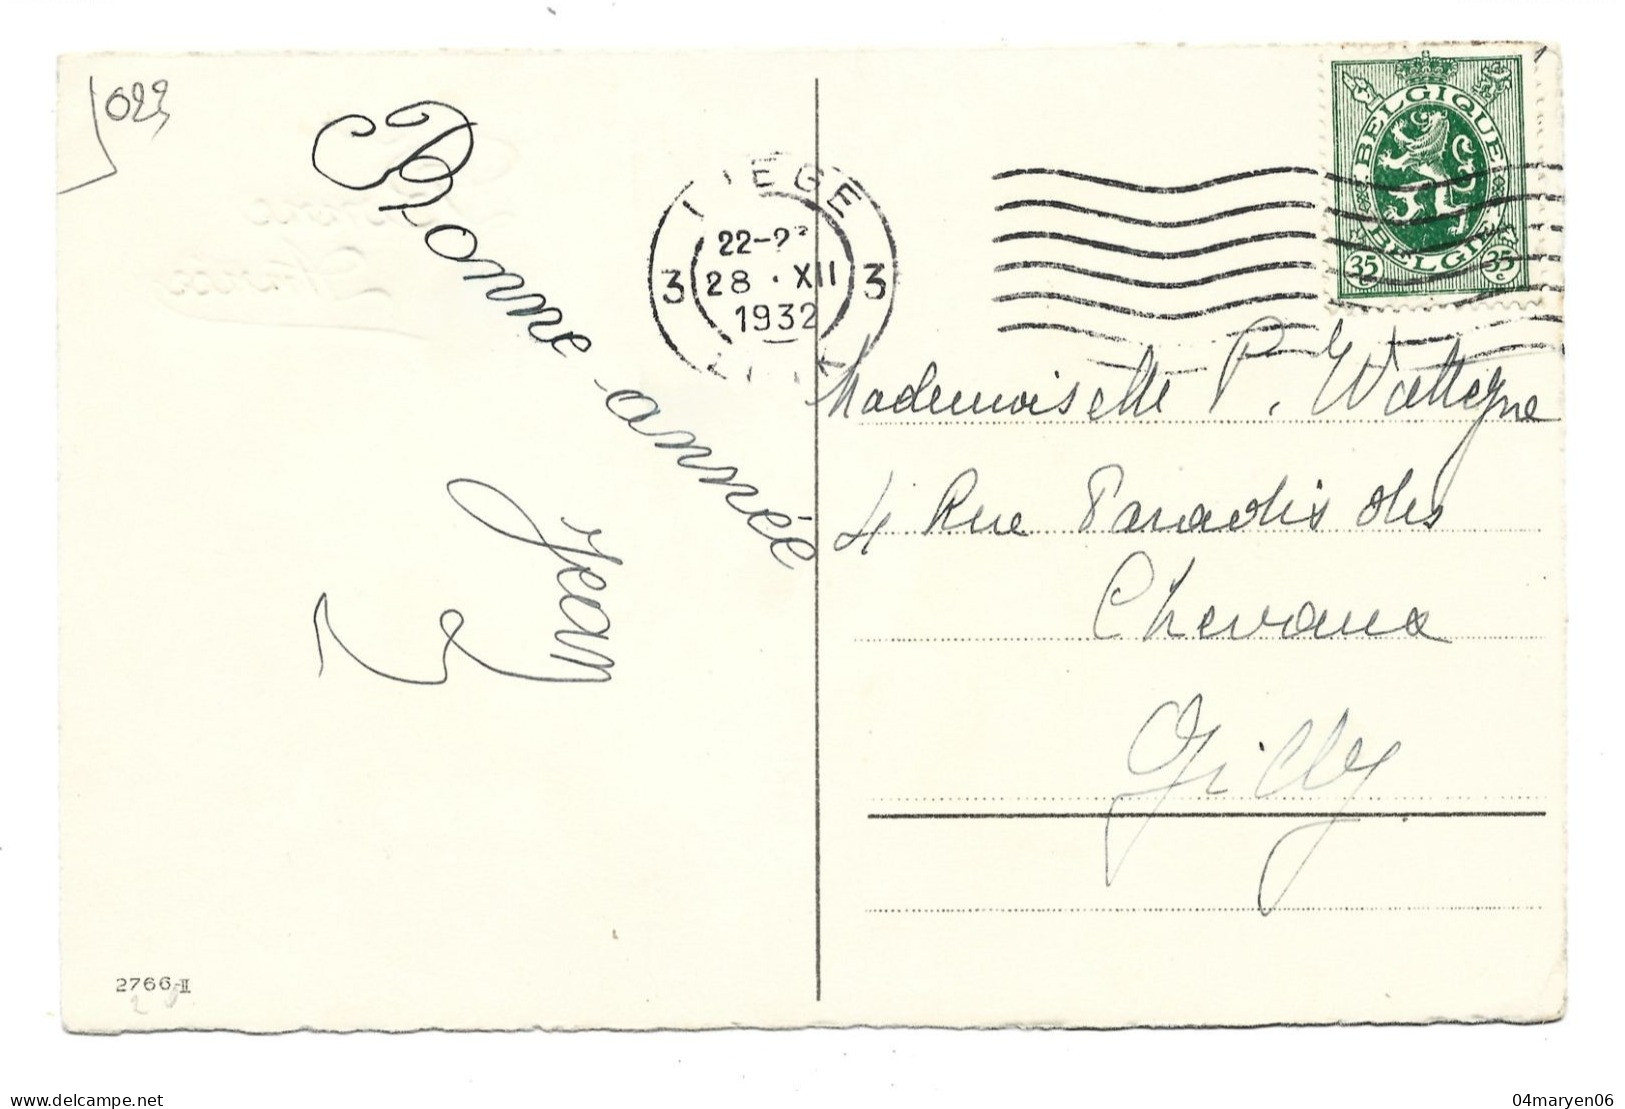 023
Bonne année
Jean
LIEGE
22-2
3 28 · XII 3
1932
BELGIQUE
BELGIE
35 c 35 c
Mademoiselle P. Wattegne
4 Rue Paradis des
Chevaux
Gilly
Bonne
Année
2766-II
04maryen06